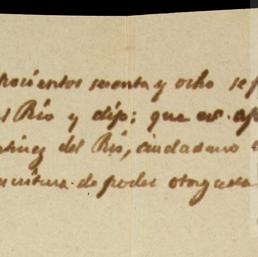 ocientos sesenta y ocho se p
el Rio y dijo; que es apo
tinez del Rio, ciudadano
escritura de poder otorgada